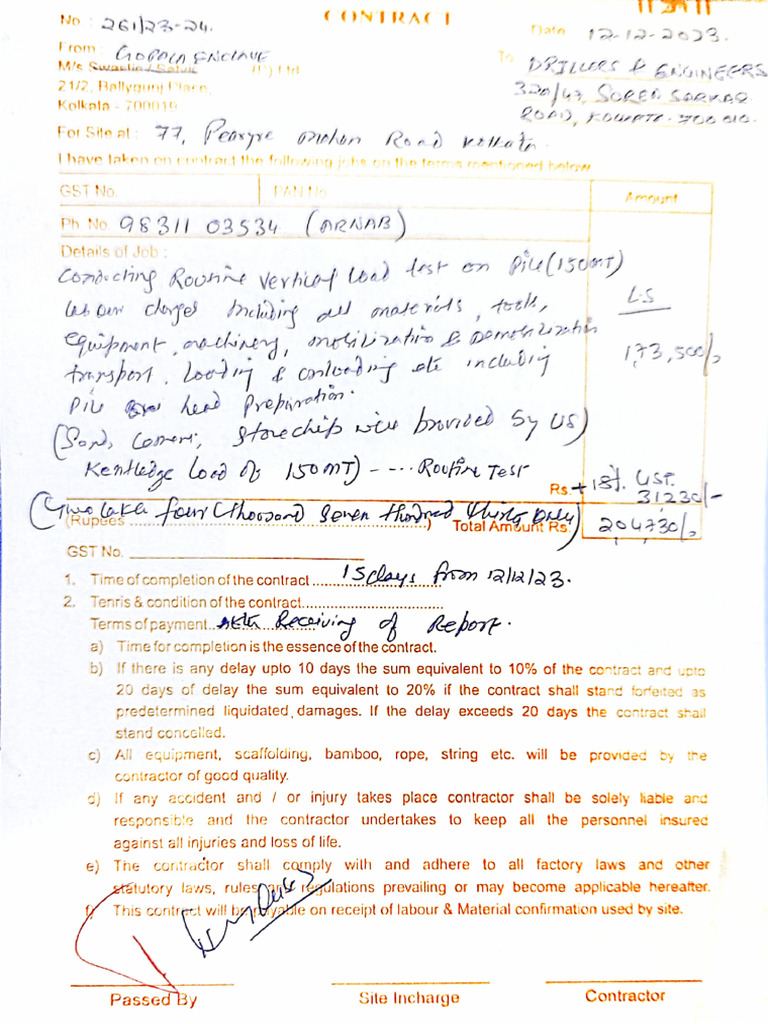 CONTRACT
No : 261/23-24.
Date 12-12-2023.
From : GOPALA ENCLAVE
M/s Swastic / Satvic (P) Ltd.
21/2, Ballygunj Place,
Kolkata - 700019
To DRILLERS & ENGINEERS
320/47, SOREN SARKAR
ROAD, KOLKATA - 700 010.
For Site at : 77, Mohan Road Kolkata.
I have taken on contract the following jobs on the terms mentioned below
GST No. PAN No. Amount
Ph No 98311 03534 (ARNAB)
Details of Job :
Conducting Routine Vertical Load test on Pile (150MT)
labour charges Including all materials, tools, L.S
equipment, machinery, mobilization & Demobilization 173,500/-
transport, loading & unloading etc including
Pile head Preparation.
(Sand, Cement, Stonechips will be provided by US)
Kentledge Load of 150MT) - ... Routine Test
Rs. + 18% GST. 31230/-
(Two lakh four thousand seven Hundred thirty Only)
(Rupees ........) Total Amount Rs. 204730/-
GST No.
1. Time of completion of the contract ....... 15days from 12/12/23.
2. Terms & condition of the contract..............
Terms of payment After Receiving of Report.
a) Time for completion is the essence of the contract.
b) If there is any delay upto 10 days the sum equivalent to 10% of the contract and upto
20 days of delay the sum equivalent to 20% if the contract shall stand forfeited as
predetermined liquidated damages. If the delay exceeds 20 days the contract shall
stand concelled.
c) All equipment, scaffolding, bamboo, rope, string etc. will be provided by the
contractor of good quality.
d) If any accident and / or injury takes place contractor shall be solely liable and
responsible and the contractor undertakes to keep all the personnel insured
against all injuries and loss of life.
e) The contractor shall comply with and adhere to all factory laws and other
statutory laws, rules and regulations prevailing or may become applicable hereafter.
f) This contract will be payable on receipt of labour & Material confirmation used by site.
Passed By Site Incharge Contractor